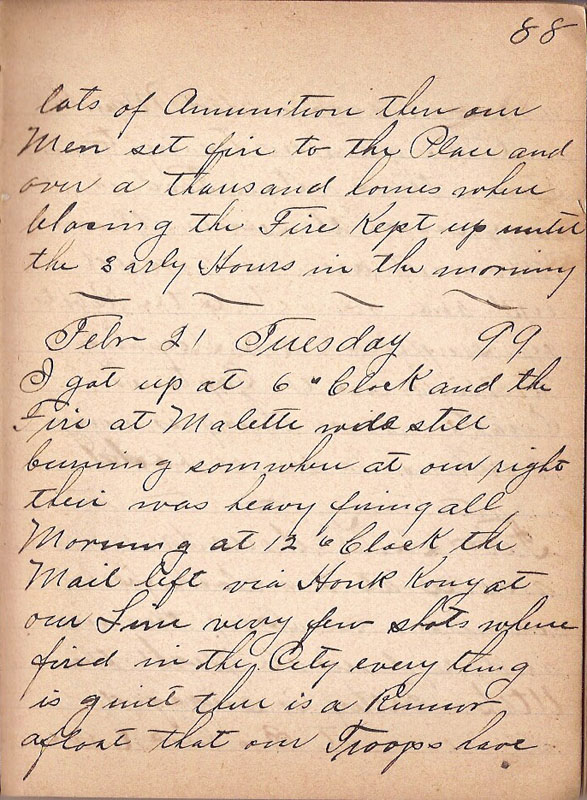 88
lots of Amunition then our
Men set fire to the Place and
over a thousand homes where
blasing the Fire Kept up until
the Early Hours in the morning
Febr 21 Tuesday 99
I got up at 6 o Clock and the
Fire at Malette was still
burning somwher at our right
their was heavy firing all
Morning at 12 o Clock the
Mail left via Honk Kong at
our Line verry few shots where
fired in the City every thing
is quiet ther is a Rumor
afloat that our Troops have